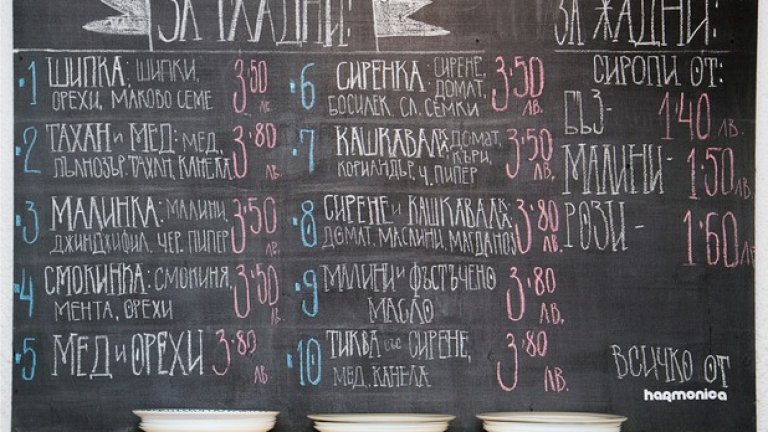 ЗА ГЛАДНИ:
1 ШИПКА: ШИПКИ, 3.50 ЛВ.
ОРЕХИ, МАКОВО СЕМЕ
2 ТАХАН И МЕД: МЕД, 3.80 ЛВ.
ПЪЛНОЗЪР. ТАХАН, КАНЕЛА
3 МАЛИНКА: МАЛИНИ, 3.50 ЛВ.
ДЖИНДЖИФИЛ, ЧЕР. ПИПЕР
4 СМОКИНКА: СМОКИНЯ, 3.50 ЛВ.
МЕНТА, ОРЕХИ
5 МЕД И ОРЕХИ 3.80 ЛВ.
6 СИРЕНКА: СИРЕНЕ, 3.50 ЛВ.
ДОМАТ,
БОСИЛЕК, СЛ. СЕМКИ
7 КАШКАВАЛКА: ДОМАТ, 3.50 ЛВ.
КЪРИ,
КОРИАНДЪР, Ч. ПИПЕР
8 СИРЕНЕ И КАШКАВАЛ: 3.80 ЛВ.
ДОМАТ, МАСЛИНИ, МАГДАНОЗ
9 МАЛИНИ И ФЪСТЪЧЕНО 3.80 ЛВ.
МАСЛО
10 ТИКВА СЪС СИРЕНЕ, 3.80 ЛВ.
МЕД, КАНЕЛА
ЗА ЖАДНИ:
СИРОПИ ОТ:
БЪЗ- 1.40 ЛВ.
МАЛИНИ- 1.50 ЛВ.
РОЗИ- 1.60 ЛВ.
ВСИЧКО ОТ
harmonica